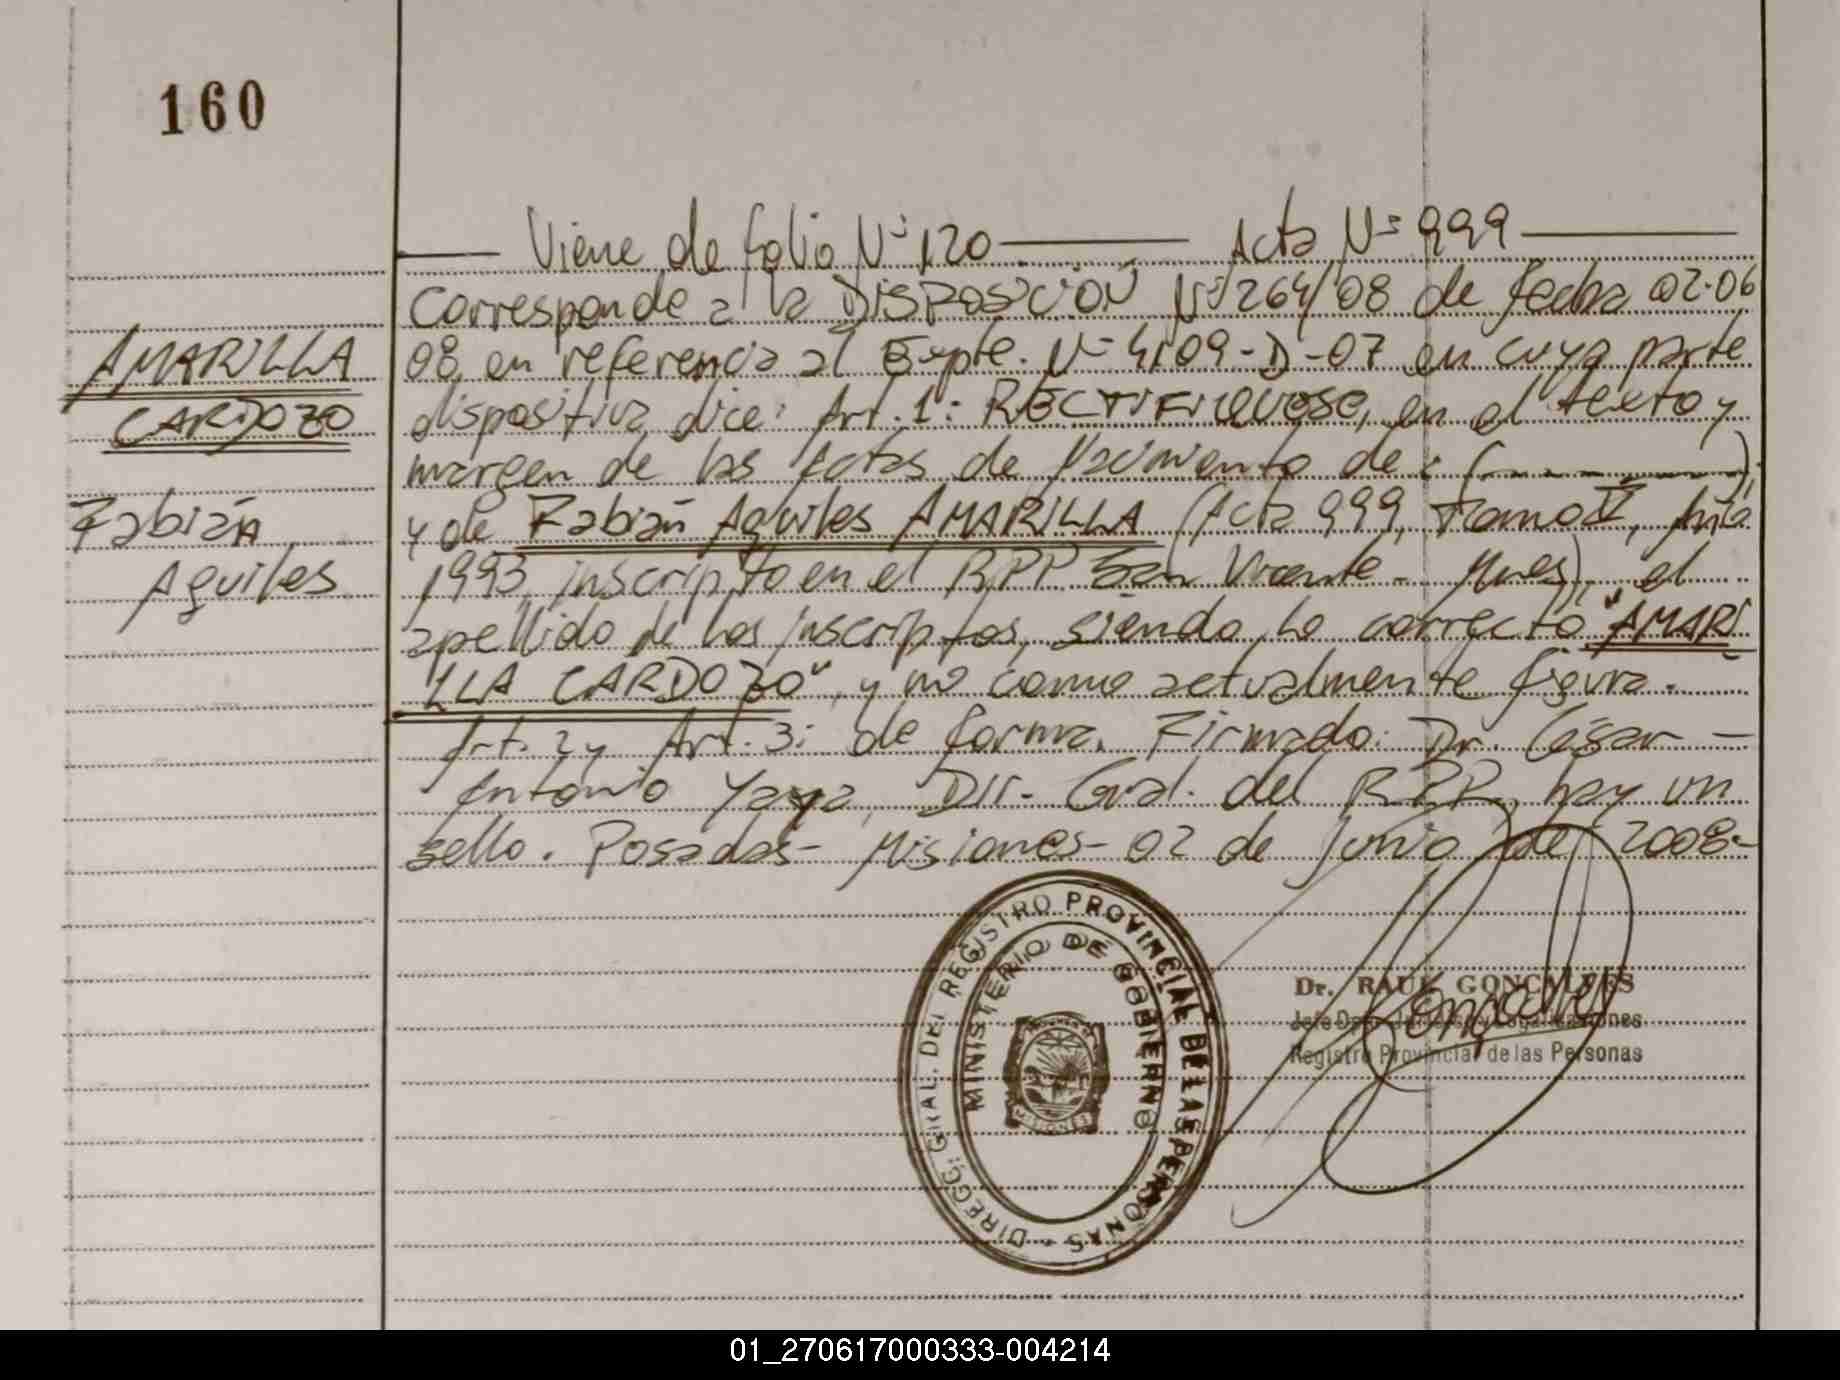 160
Viene de folio Nº 120 Acta Nº 999
Corresponde a la DISPOSICIÓN Nº 264/08 de fecha 02-06
08 en referencia al Expte. Nº 4109-D-07 en cuya parte
dispositiva dice: Art. 1: RECTIFIQUESE, en el texto y
margen de las Actas de Nacimiento de: (--------);
y de Fabián Aquiles AMARILLA (Acta 999, Tomo V, Año
1993, inscripto en el RPP San Vicente - Mnes), el
apellido de los inscriptos, siendo lo correcto "AMARI
LLA CARDOZO", y no como actualmente figura.
Art. 2 y Art. 3: de forma. Firmado: Dr. César -
Antonio Yaya, Dir. Gral. del RPP, hay un
sello. Posadas - Misiones - 02 de Junio de 2008-
AMARILLA
CARDOZO
Fabián
Aquiles
DIRECC. GRAL. DEL REGISTRO PROVINCIAL DE LAS PERSONAS -
MINISTERIO DE GOBIERNO
MISIONES
Dr. RAUL GONCALVES
Jefe Dpto. Jurídico y Legalizaciones
Registro Provincial de las Personas
01_270617000333-004214